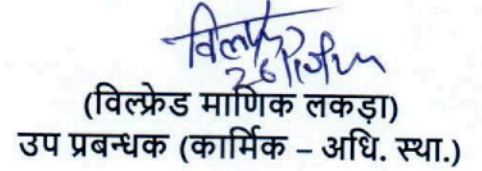 (विल्फ्रेड माणिक लकड़ा)
उप प्रबन्धक (कार्मिक – अधि. स्था.)